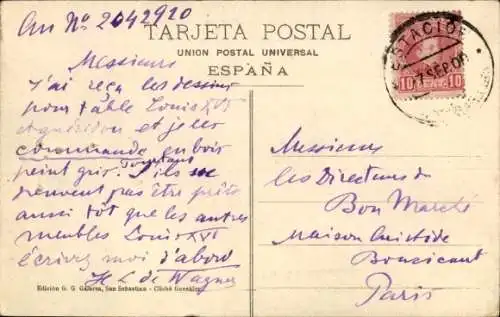 au Nº 2042920
TARJETA POSTAL
UNION POSTAL UNIVERSAL
ESPAÑA
ESTACION
SEP 06
10 10
Messieurs
J'ai reçu les dessins
pour table Louis XVI
et guéridon et je les
commande en bois
peint gris. Pourtant
S'ils ne
peuvent pas être prêts
aussi tôt que les autres
meubles Louis XVI
écrivez moi d'abord
H L de Wagner
Messieurs
les Directeurs du
Bon Marché
Maison Aristide
Boucicaut
Paris
Edición G. G. Galarza, San Sebastian - Cliché González